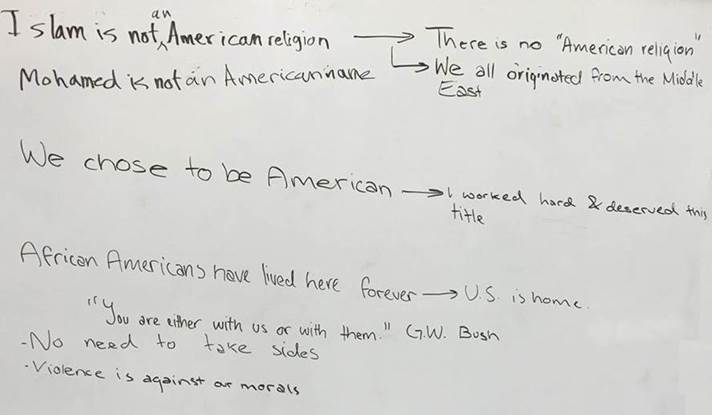 Islam is not an American religion → There is no "American religion"
↳ We all originated from the Middle
East
Mohamed is not an American name
We chose to be American → I worked hard & deserved this
title
African Americans have lived here forever → U.S. is home.
"You are either with us or with them." G.W. Bush
- No need to take sides
- Violence is against our morals